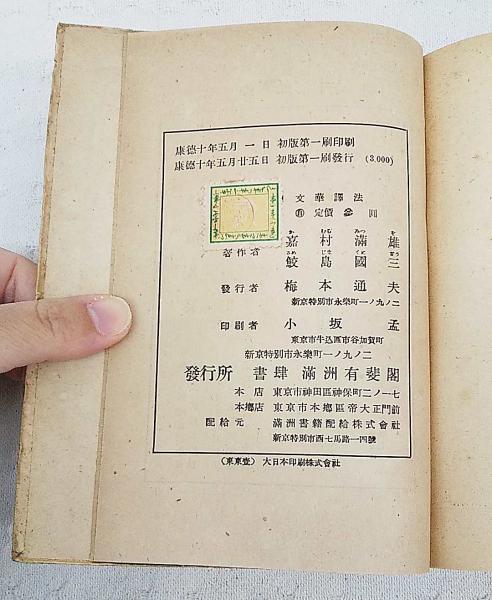 康德十年五月一日 初版第一刷印刷
康德十年五月廿五日 初版第一刷發行 (3,000)
文華譯法
定價參圓
著作者
嘉村滿雄
鮫島國三
發行者 梅本通夫
新京特別市永樂町一ノ九ノ二
印刷者 小坂孟
東京市牛込區市谷加賀町
新京特別市永樂町一ノ九ノ二
發行所 書肆 滿洲有斐閣
本店 東京市神田區神保町二ノ一七
本鄉店 東京市本鄉區帝大正門前
配給元 滿洲書籍配給株式會社
新京特別市西七馬路一四號
(東東壹) 大日本印刷株式會社